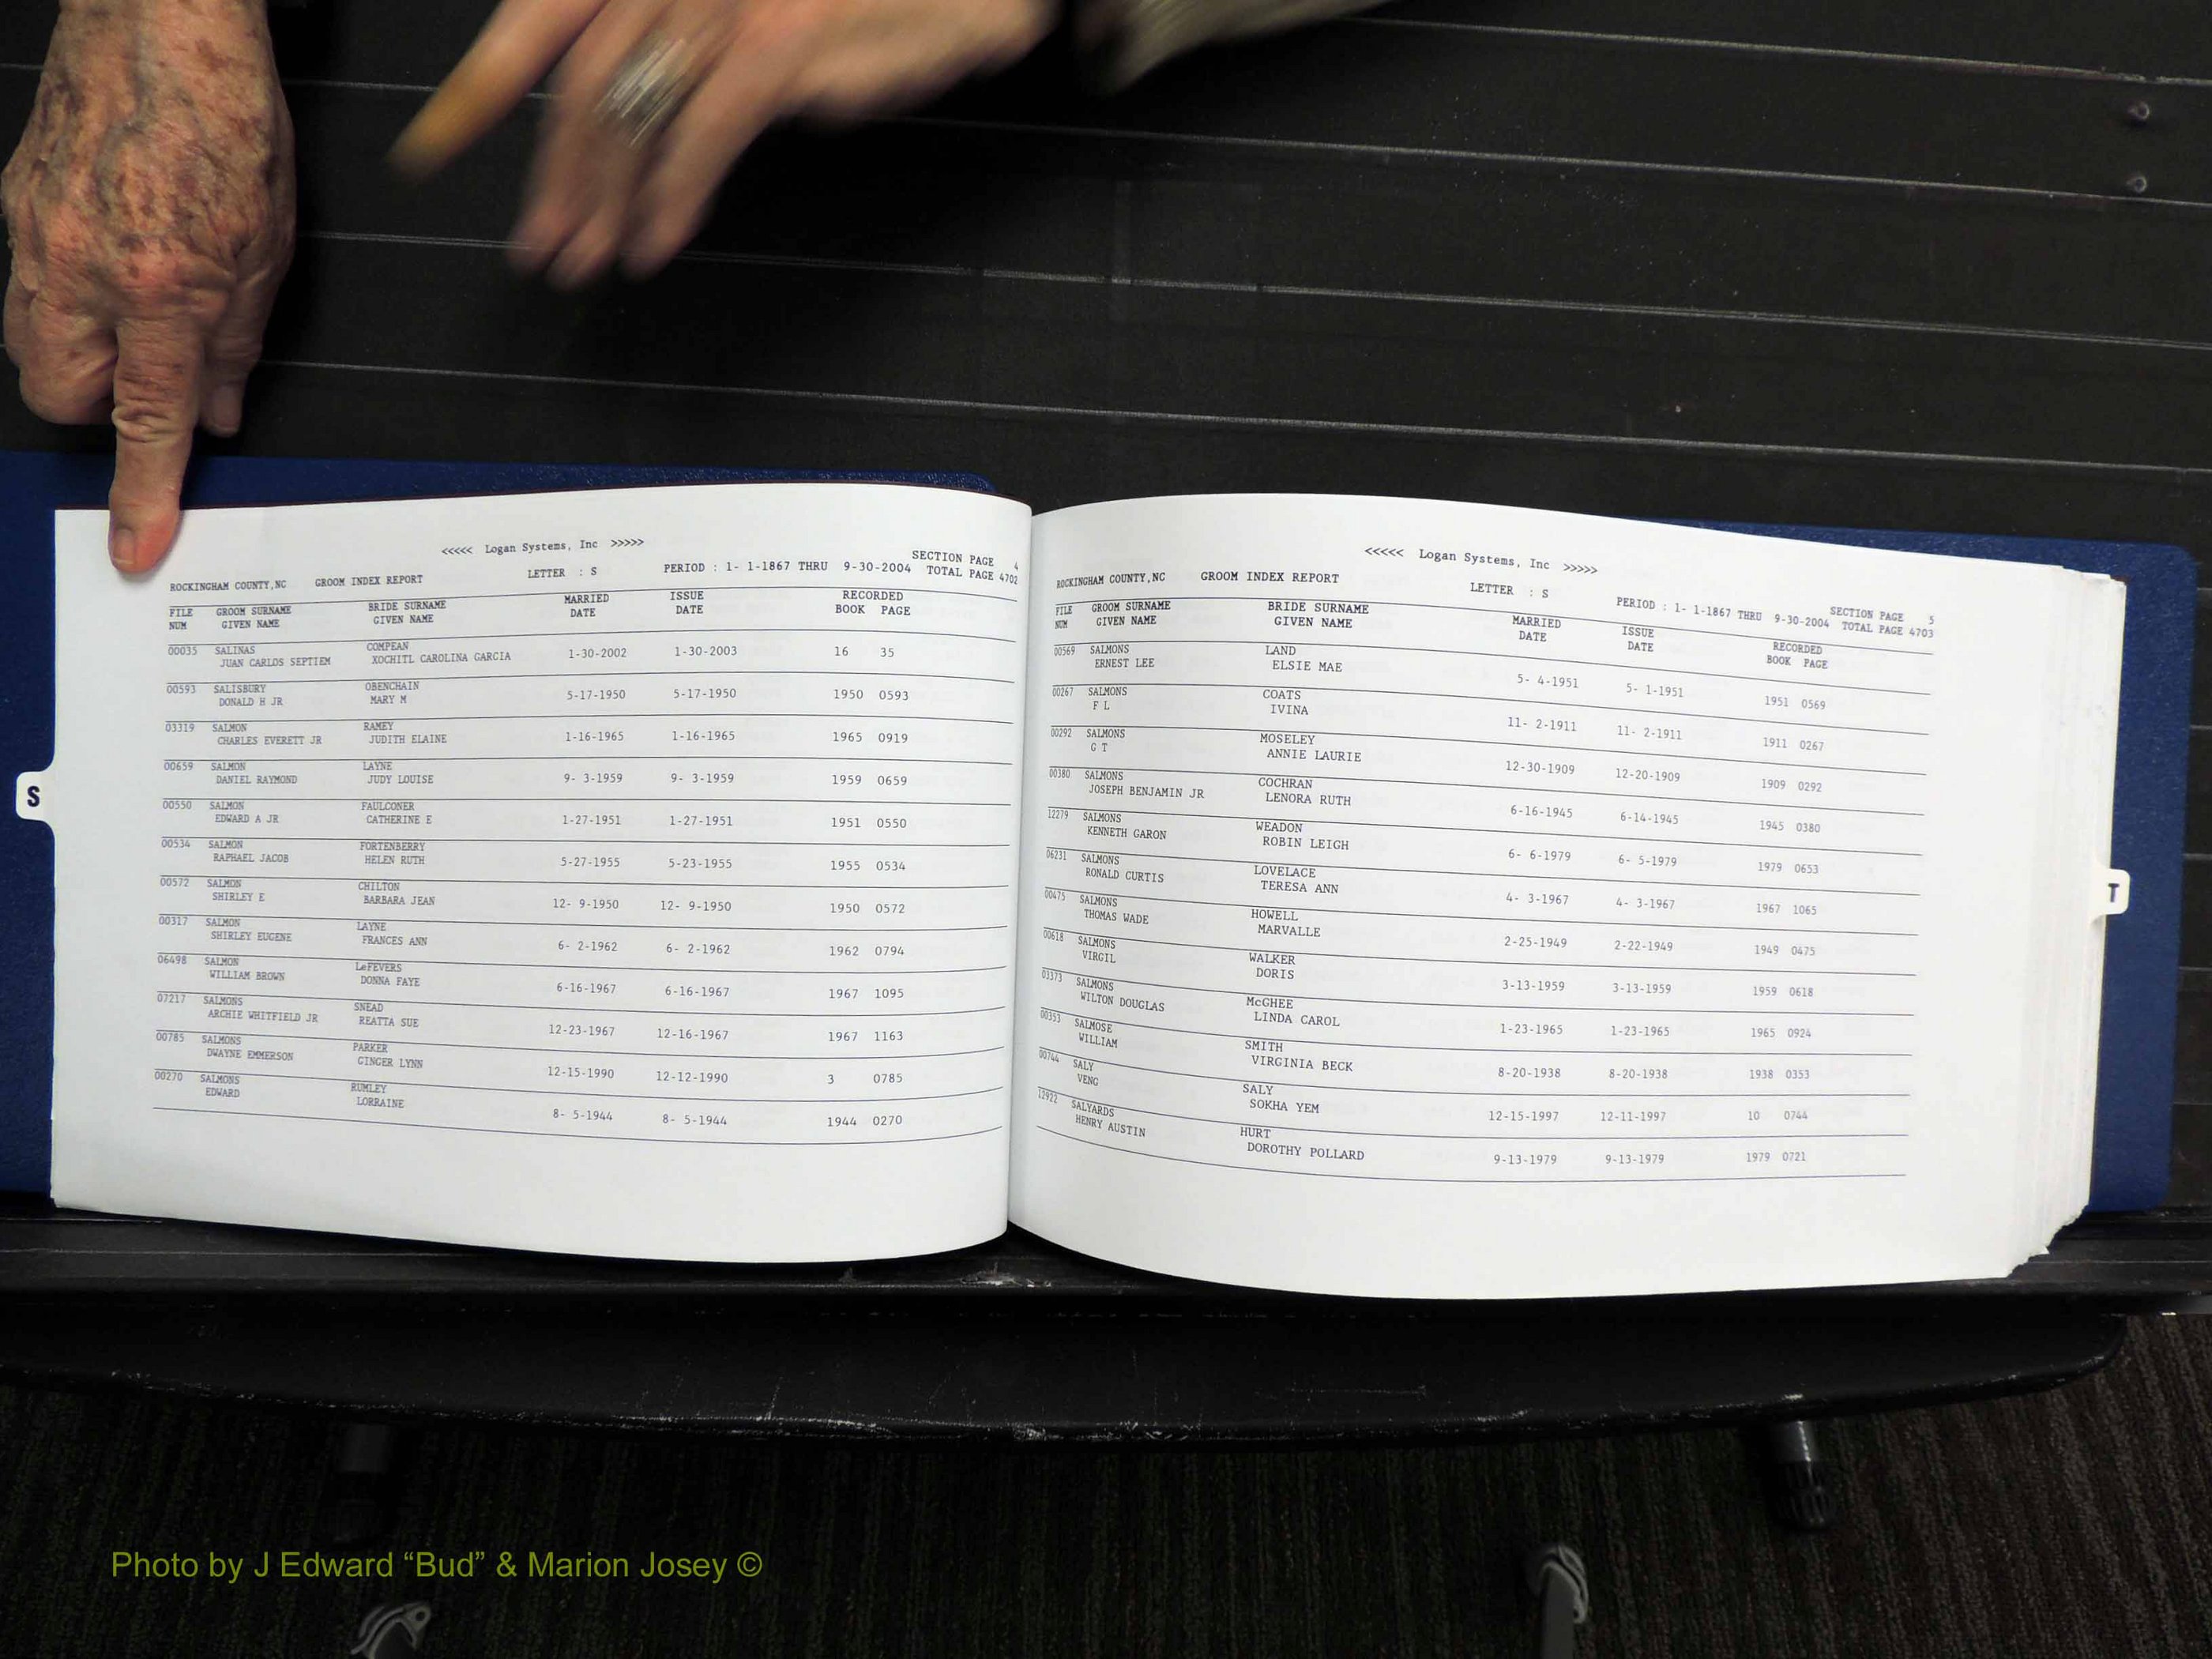 <<<<< Logan Systems, Inc >>>>>
SECTION PAGE 4
ROCKINGHAM COUNTY,NC GROOM INDEX REPORT LETTER : S PERIOD : 1- 1-1867 THRU 9-30-2004 TOTAL PAGE 4702
FILE GROOM SURNAME BRIDE SURNAME MARRIED ISSUE RECORDED
NUM GIVEN NAME GIVEN NAME DATE DATE BOOK PAGE
00035 SALINAS COMPEAN 1-30-2002 1-30-2003 16 35
JUAN CARLOS SEPTIEM XOCHITL CAROLINA GARCIA
00593 SALISBURY OBENCHAIN 5-17-1950 5-17-1950 1950 0593
DONALD H JR MARY M
03319 SALMON RAMEY 1-16-1965 1-16-1965 1965 0919
CHARLES EVERETT JR JUDITH ELAINE
00659 SALMON LAYNE 9- 3-1959 9- 3-1959 1959 0659
DANIEL RAYMOND JUDY LOUISE
00550 SALMON FAULCONER 1-27-1951 1-27-1951 1951 0550
EDWARD A JR CATHERINE E
00534 SALMON FORTENBERRY 5-27-1955 5-23-1955 1955 0534
RAPHAEL JACOB HELEN RUTH
00572 SALMON CHILTON 12- 9-1950 12- 9-1950 1950 0572
SHIRLEY E BARBARA JEAN
00317 SALMON LAYNE 6- 2-1962 6- 2-1962 1962 0794
SHIRLEY EUGENE FRANCES ANN
06498 SALMON LeFEVERS 6-16-1967 6-16-1967 1967 1095
WILLIAM BROWN DONNA FAYE
07217 SALMONS SNEAD 12-23-1967 12-16-1967 1967 1163
ARCHIE WHITFIELD JR REATTA SUE
00785 SALMONS PARKER 12-15-1990 12-12-1990 3 0785
DWAYNE EMMERSON GINGER LYNN
00270 SALMONS RUMLEY 8- 5-1944 8- 5-1944 1944 0270
EDWARD LORRAINE
S
<<<<< Logan Systems, Inc >>>>>
SECTION PAGE 5
ROCKINGHAM COUNTY,NC GROOM INDEX REPORT LETTER : S PERIOD : 1- 1-1867 THRU 9-30-2004 TOTAL PAGE 4703
FILE GROOM SURNAME BRIDE SURNAME MARRIED ISSUE RECORDED
NUM GIVEN NAME GIVEN NAME DATE DATE BOOK PAGE
00569 SALMONS LAND 5- 4-1951 5- 1-1951 1951 0569
ERNEST LEE ELSIE MAE
00267 SALMONS COATS 11- 2-1911 11- 2-1911 1911 0267
F L IVINA
00292 SALMONS MOSELEY 12-30-1909 12-20-1909 1909 0292
G T ANNIE LAURIE
00380 SALMONS COCHRAN 6-16-1945 6-14-1945 1945 0380
JOSEPH BENJAMIN JR LENORA RUTH
12279 SALMONS WEADON 6- 6-1979 6- 5-1979 1979 0653
KENNETH GARON ROBIN LEIGH
06231 SALMONS LOVELACE 4- 3-1967 4- 3-1967 1967 1065
RONALD CURTIS TERESA ANN
00475 SALMONS HOWELL 2-25-1949 2-22-1949 1949 0475
THOMAS WADE MARVALLE
00618 SALMONS WALKER 3-13-1959 3-13-1959 1959 0618
VIRGIL DORIS
03373 SALMONS McGHEE 1-23-1965 1-23-1965 1965 0924
WILTON DOUGLAS LINDA CAROL
00353 SALMOSE SMITH 8-20-1938 8-20-1938 1938 0353
WILLIAM VIRGINIA BECK
00744 SALY SALY 12-15-1997 12-11-1997 10 0744
VENG SOKHA YEM
12922 SALYARDS HURT 9-13-1979 9-13-1979 1979 0721
HENRY AUSTIN DOROTHY POLLARD
T
Photo by J Edward “Bud” & Marion Josey ©